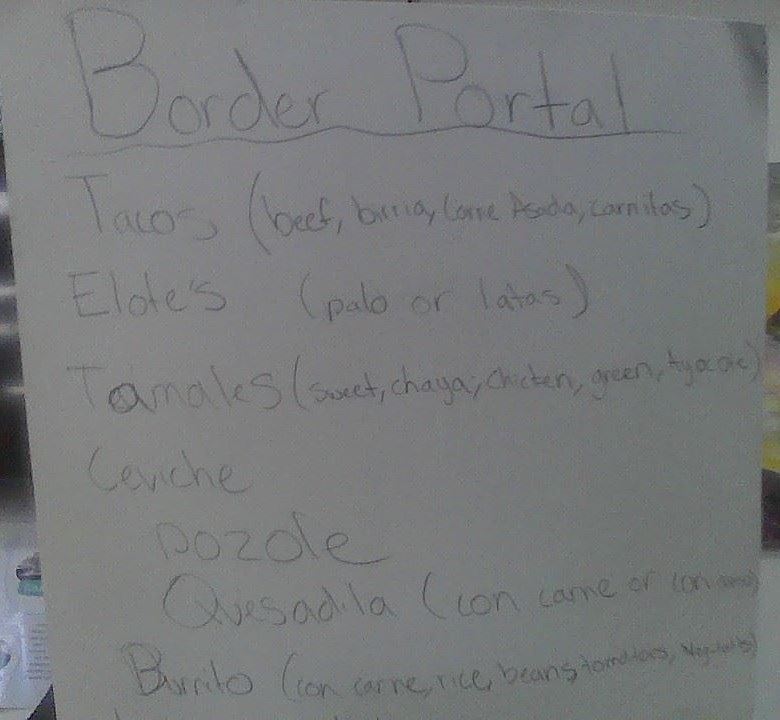 Border Portal
Tacos (beef, birria, Carne Asada, carnitas)
Elotes (palo or latas)
Tamales (sweet, chaya, chicken, green,
Ceviche
Pozole
Quesadilla (con carne or con
Burrito (con carne, rice, beans, tomatoes,